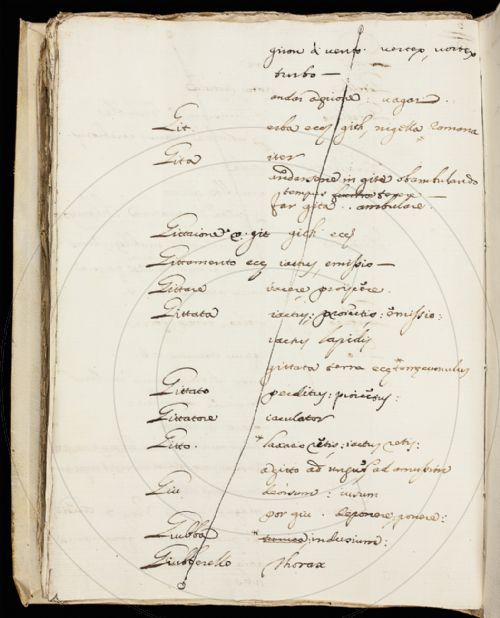 giron di vento. vertex, vortex
turbo —
andar agirone: vagar.
Git erba ecc. gith nigella romana
Gita iter
andarsene in gite obambulando
tempus terere
far gita.. ambulare.
Gittaione v. git gith ecc.
Gittamento ecc iactus, emissio —
Gittare iacere, proijcere.
Gittata iactus; proiectio; emissio:
iactus lapidis
gittata terra ecc
Gittato perditus; proiectus;
Gittatore iaculator
Gitto. iactus
agitto ad unguem ad amussim
Giu deorsum: iusum
por giu. deponere, ponere:
Giubba tunica; indusium:
Giubberello Thorax